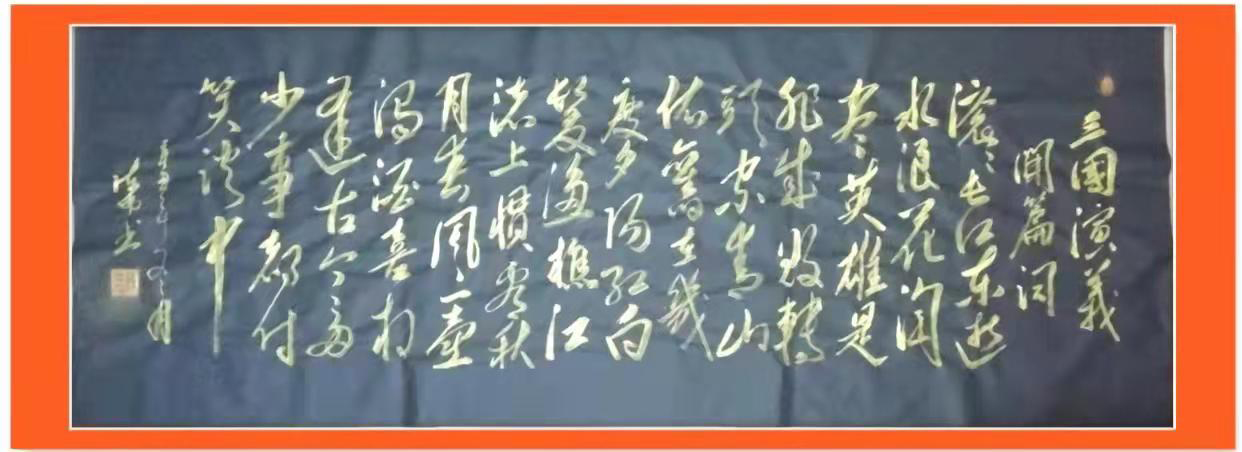 三國演義
開篇词
滚滚长江东逝
水浪花淘
尽英雄是
非成败轉
頭空青山
依舊在幾
度夕阳红白
髮渔樵江
渚上惯看秋
月春风一壶
浊酒喜相
逢古今多
少事都付
笑谈中